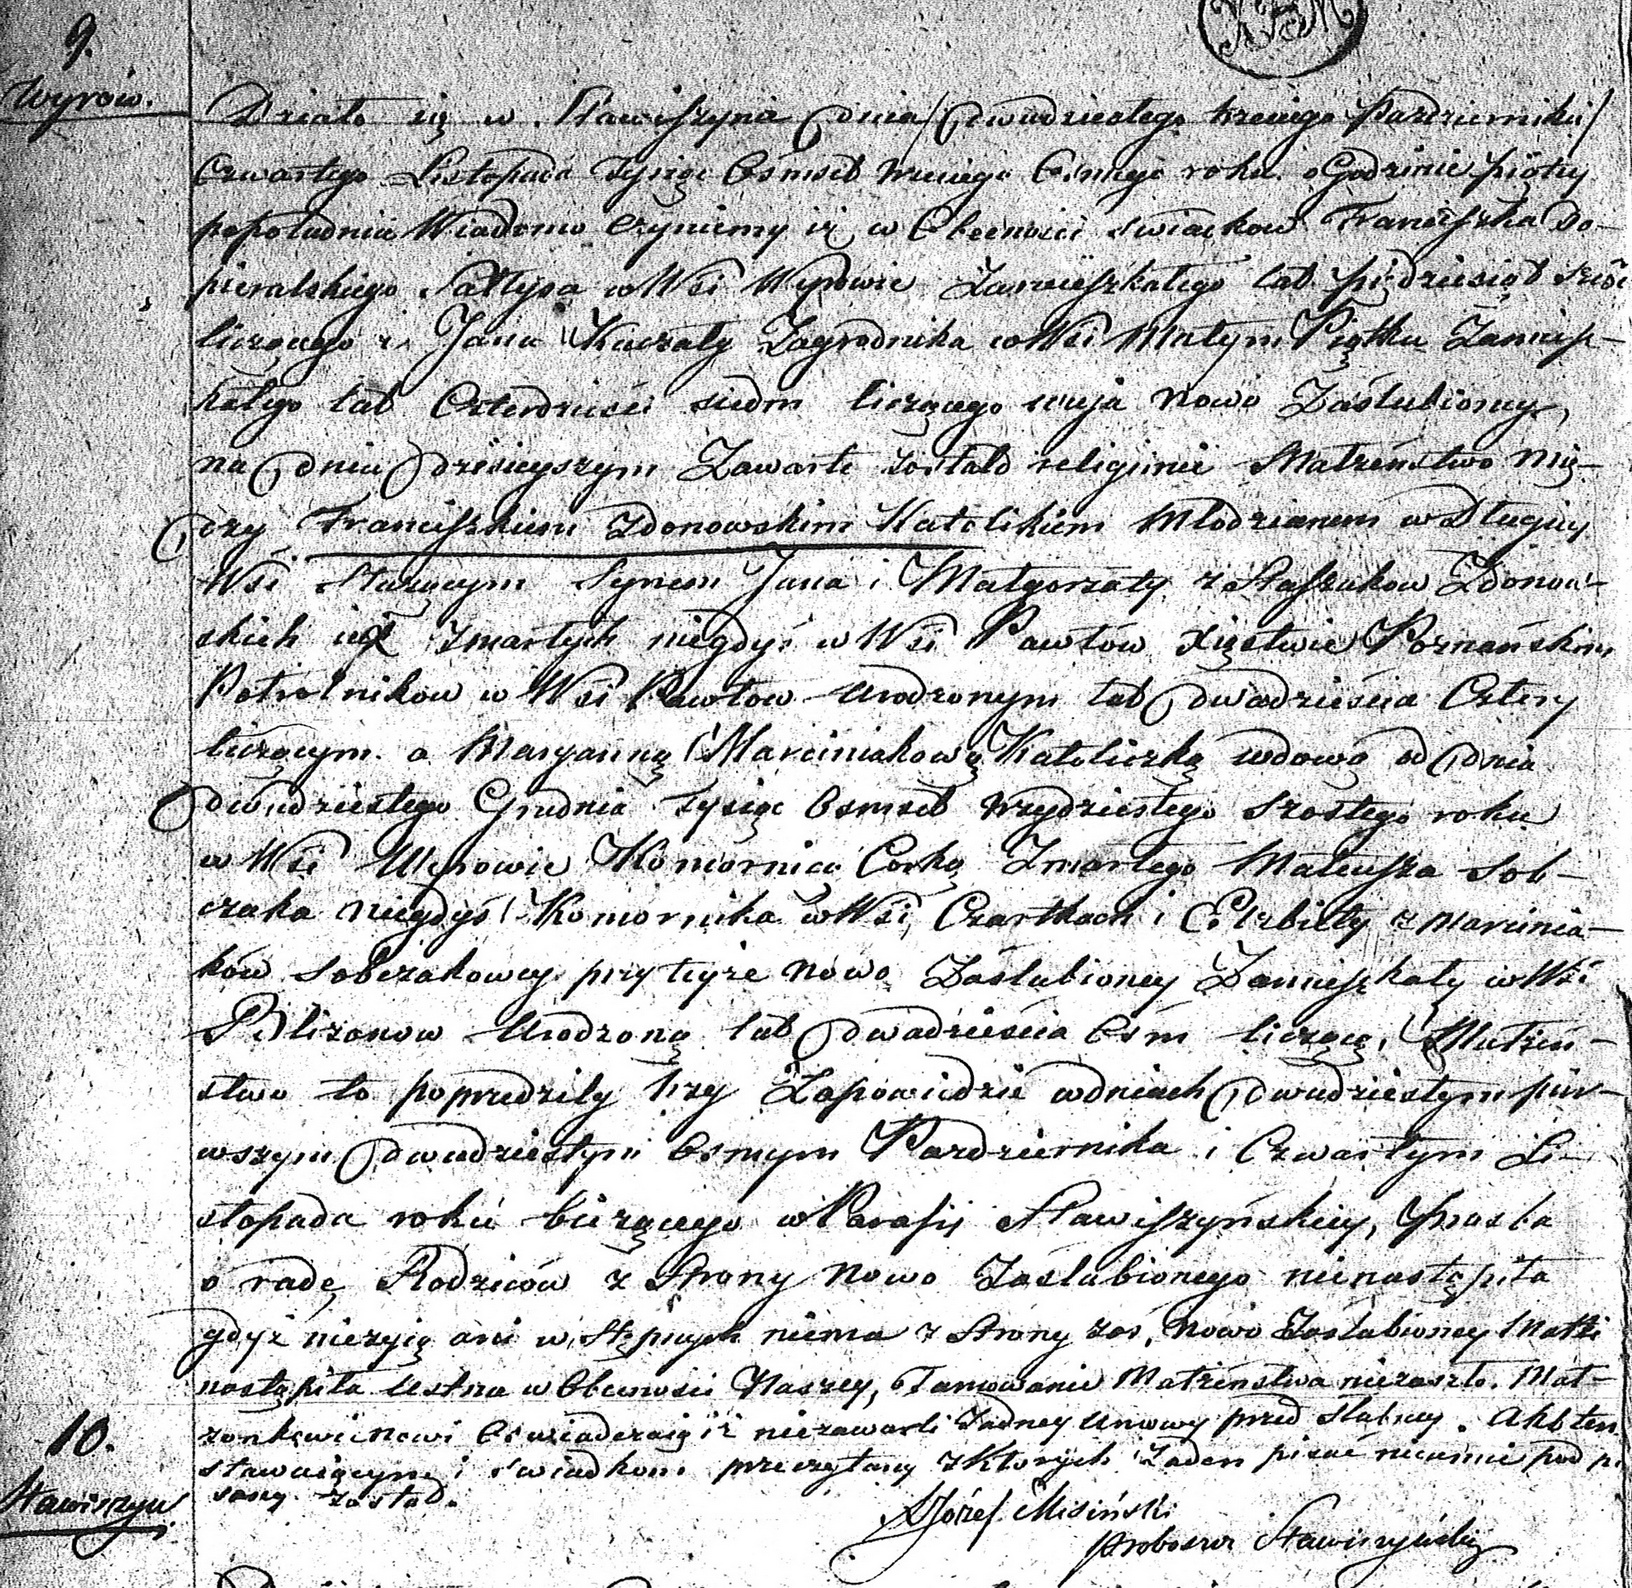 9.
Wyrów.
Działo się w Stawiszynie dnia /dwudziestego trzeciego Pazdziernika/
Czwartego Listopada tysiąc Ośmset trzeciego Osmego roku o Godzinie piątey
popołudniu Wiadomo Czyniemy iż w Obecności swiadkow Franciszka Do-
pieralskiego Sołtysa w Wsi Wyrowie Zamieszkałego lat piędziesiąt sześć
liczącego i Jana Kaczały Zagrodnika w Wsi Małym Piątku Zamiesz-
kałego lat Czterdzieści siedm liczącego wuja Nowo Zaślubioney,
na dniu dzisieyszym Zawarte zostało religijnie Małżeństwo Mię-
dzy Franciszkiem Zdonowskim Katolikiem Młodzianem w Długiey
Wsi służącym Synem Jana i Małgorzaty z Staszaków Zdonow-
skich iuż zmarłych niegdyś w Wsi Pawłow Xięstwie Poznańskim
Półrolnikow w Wsi Pawłow Urodzonym lat dwadzieścia Cztery
liczącym a Maryanną Marciniakową Katoliczką wdową od dnia
dwudziestego Grudnia tysiąc Osmset trzydziestego szostego roku
w Wsi Wyrowie Komornicą Corką Zmarłego Mateusza Sob-
czaka niegdyś Komornika w Wsi Czartkach i Elzbiety z Marcinia-
ków Sobczakowey przy teyże Nowo Zaślubioney Zamieszkały w Wsi
Blizanow Urodzoną lat dwadzieścia Ośm liczącą. Małżeń-
stwo to poprzedziły trzy Zapowiedzie w dniach dwudziestym pier-
wszym dwudziestym Osmym Pazdziernika i Czwartym Li-
stopada roku bieżącego w Parafii Stawiszyńskiey, Prosba
o radę Rodziców z Strony Nowo Zaślubionego nienastąpiła
gdyż nieżyią ani wstępnych niema z Strony zaś Nowo Zaslubioney Matki
nastąpiła Ustna w Obecności Naszey, Tamowanie Małżeństwa niezaszło. Mał-
żonkowie Nowi Oswiadczaią iż niezawarli Żadney Umowy przed slubney. Akt ten
stawaiącym i Swiadkom przeczytany z których Żaden pisać nieumie podpi-
sany został.
X Józef Misiński
Proboszcz Stawiszyński
10.
Stawiszyn.